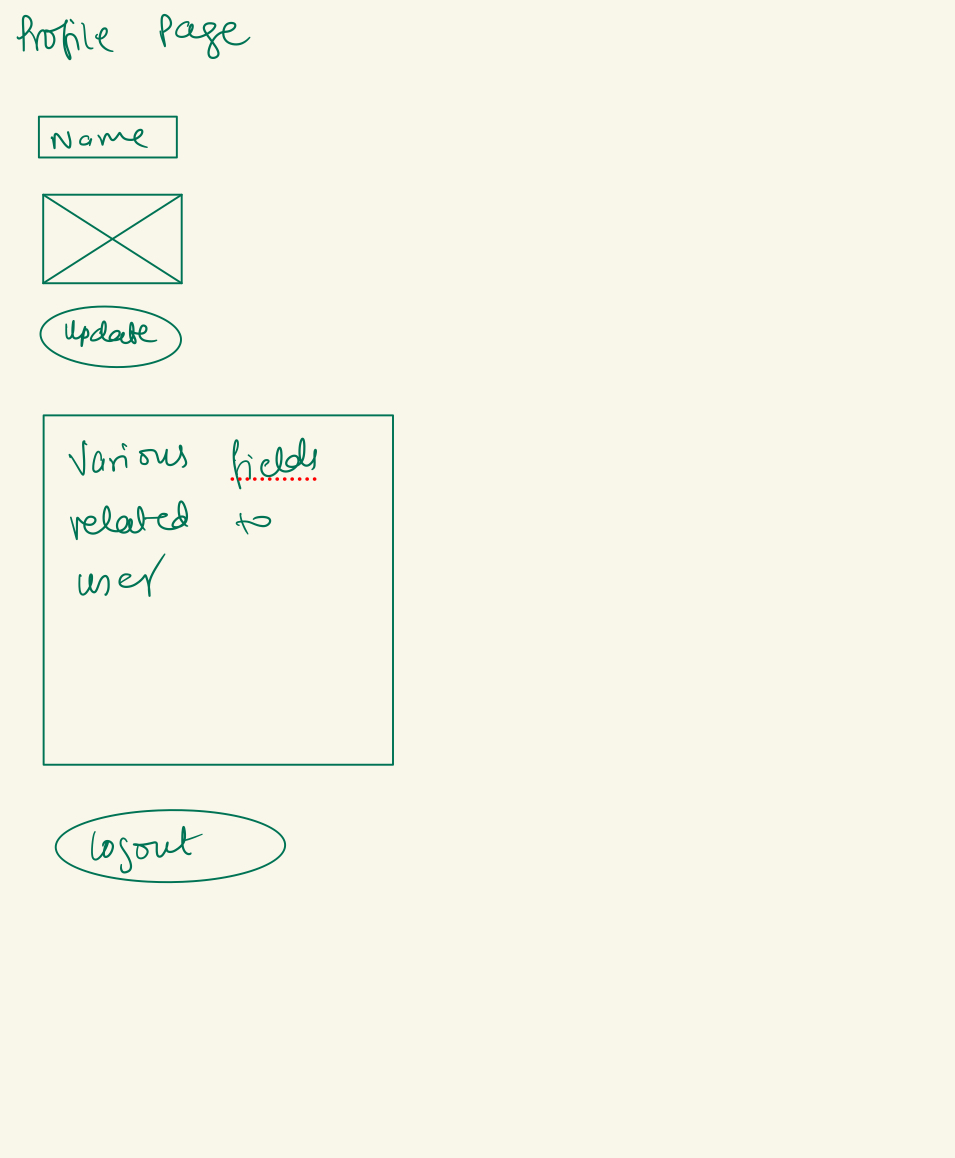 Profile Page
Name
Update
Various fields
related to
user
Logout